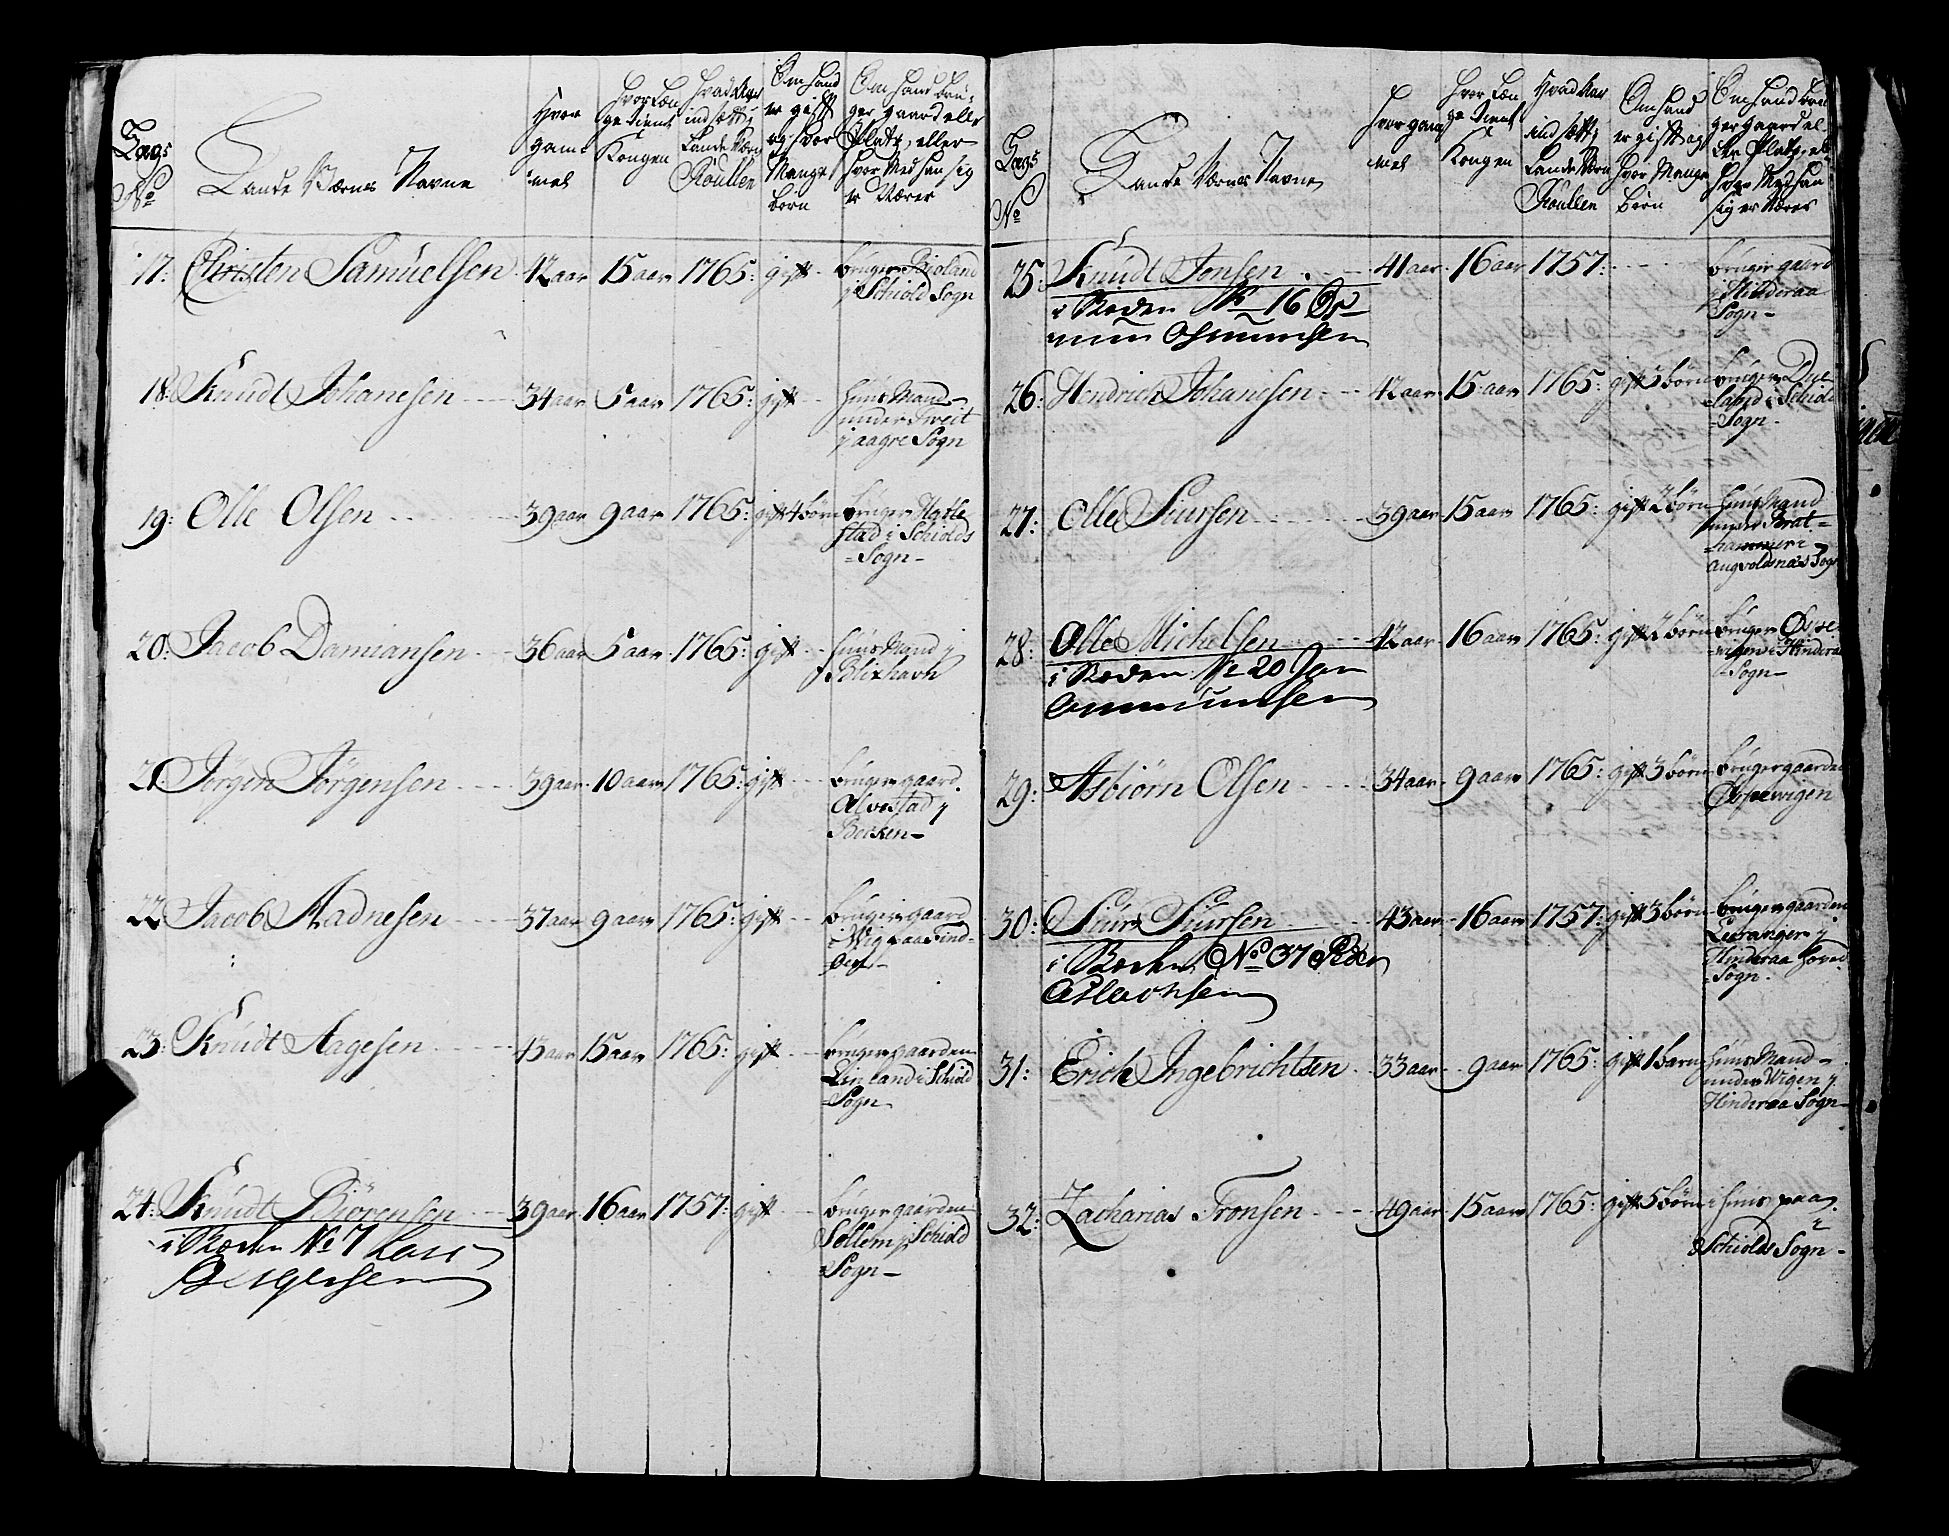 Lags No
Lande Værnes Navne
Hvor gam mel
hvor Læn ge tient Kongen
hvad Aar indsætt i Lande Værn Roullen
Om hand er gifft og hvor Mange børn
Om hand bru= ger gaard eller Platz, eller hvor Med han sig er Nærer
17: Christen Samuelsen 42 aar 15 aar 1765: gift bruger Bioland i Schiold Sogn
18: Knudt Johanesen 34 aar 5 aar 1765: gift huus Mand under Tveit i aagre Sogn
19: Olle Olsen 39 aar 9 aar 1765: gift 4 børn bruger
stad i Schiolds
=Sogn-
20: Jacob Damiansen 36 aar 5 aar 1765: gift huus Mand i
Blixhavn
21: Jørgen Jørgensen 39 aar 10 aar 1765: gift bruger gaard
Alvestad i
Bocken-
22: Jacob Aadnesen 37 aar 9 aar 1765: gift bruger gaard
23: Knudt Aagesen 45 aar 15 aar 1765: gift bruger gaarden
Linland i Schiold
Sogn
24: Knudt Biørensen 39 aar 16 aar 1757: gift bruger gaarden
i Stæden No 7 Lars
Sellem i Schiold
Sogn-
Lags No
Lande Værnes Navne
hvor gam mel
hvor Læn ge tient Kongen
Hvad Aar indsætt i Lande Værn Roullen
Om hand er gift og hvor Mange børn
Om hand bru ger gaard el- ler Platz, el hvor Med han sig er Nærer
25: Knudt Jonsen 41 aar 16 aar 1757: bruger gaard
i Hinderaa
Sogn-
i Stæden No 16 Os
mun Osmundsen
26: Hendrich Johanesen 42 aar 15 aar 1765: gift 5 børn bruger Due
land i Schiold
=Sogn-
27: Olle Siursen 39 aar 15 aar 1765: gift 2 børn huus Mand
under Brat=
hammer i
Augvoldsnæs Sogn
28: Olle Michelsen 42 aar 16 aar 1765: gift 2 børn bruger Øspe
=vigen i Hinderaa
Sogn-
i Stæden No 20 Jon
Ommundsen
29: Asbiørn Olsen 34 aar 9 aar 1765: gift 3 børn bruger gaarden
Øspewigen
30: Siur Siursen 43 aar 16 aar 1757: gift 3 børn bruger gaarden
Leeranger i
Hinderaa hoved
Sogn.
i Stæden No 37 Peder
Aslachsen
31: Erich Ingebrichtsen 33 aar 9 aar 1765: gift 1 barn huus Mand
under Wigen i
Hinderaa Sogn-
32: Zacharias Tronsen 49 aar 15 aar 1765: gift 5 børn i huus paa
Schiolds Sogn-